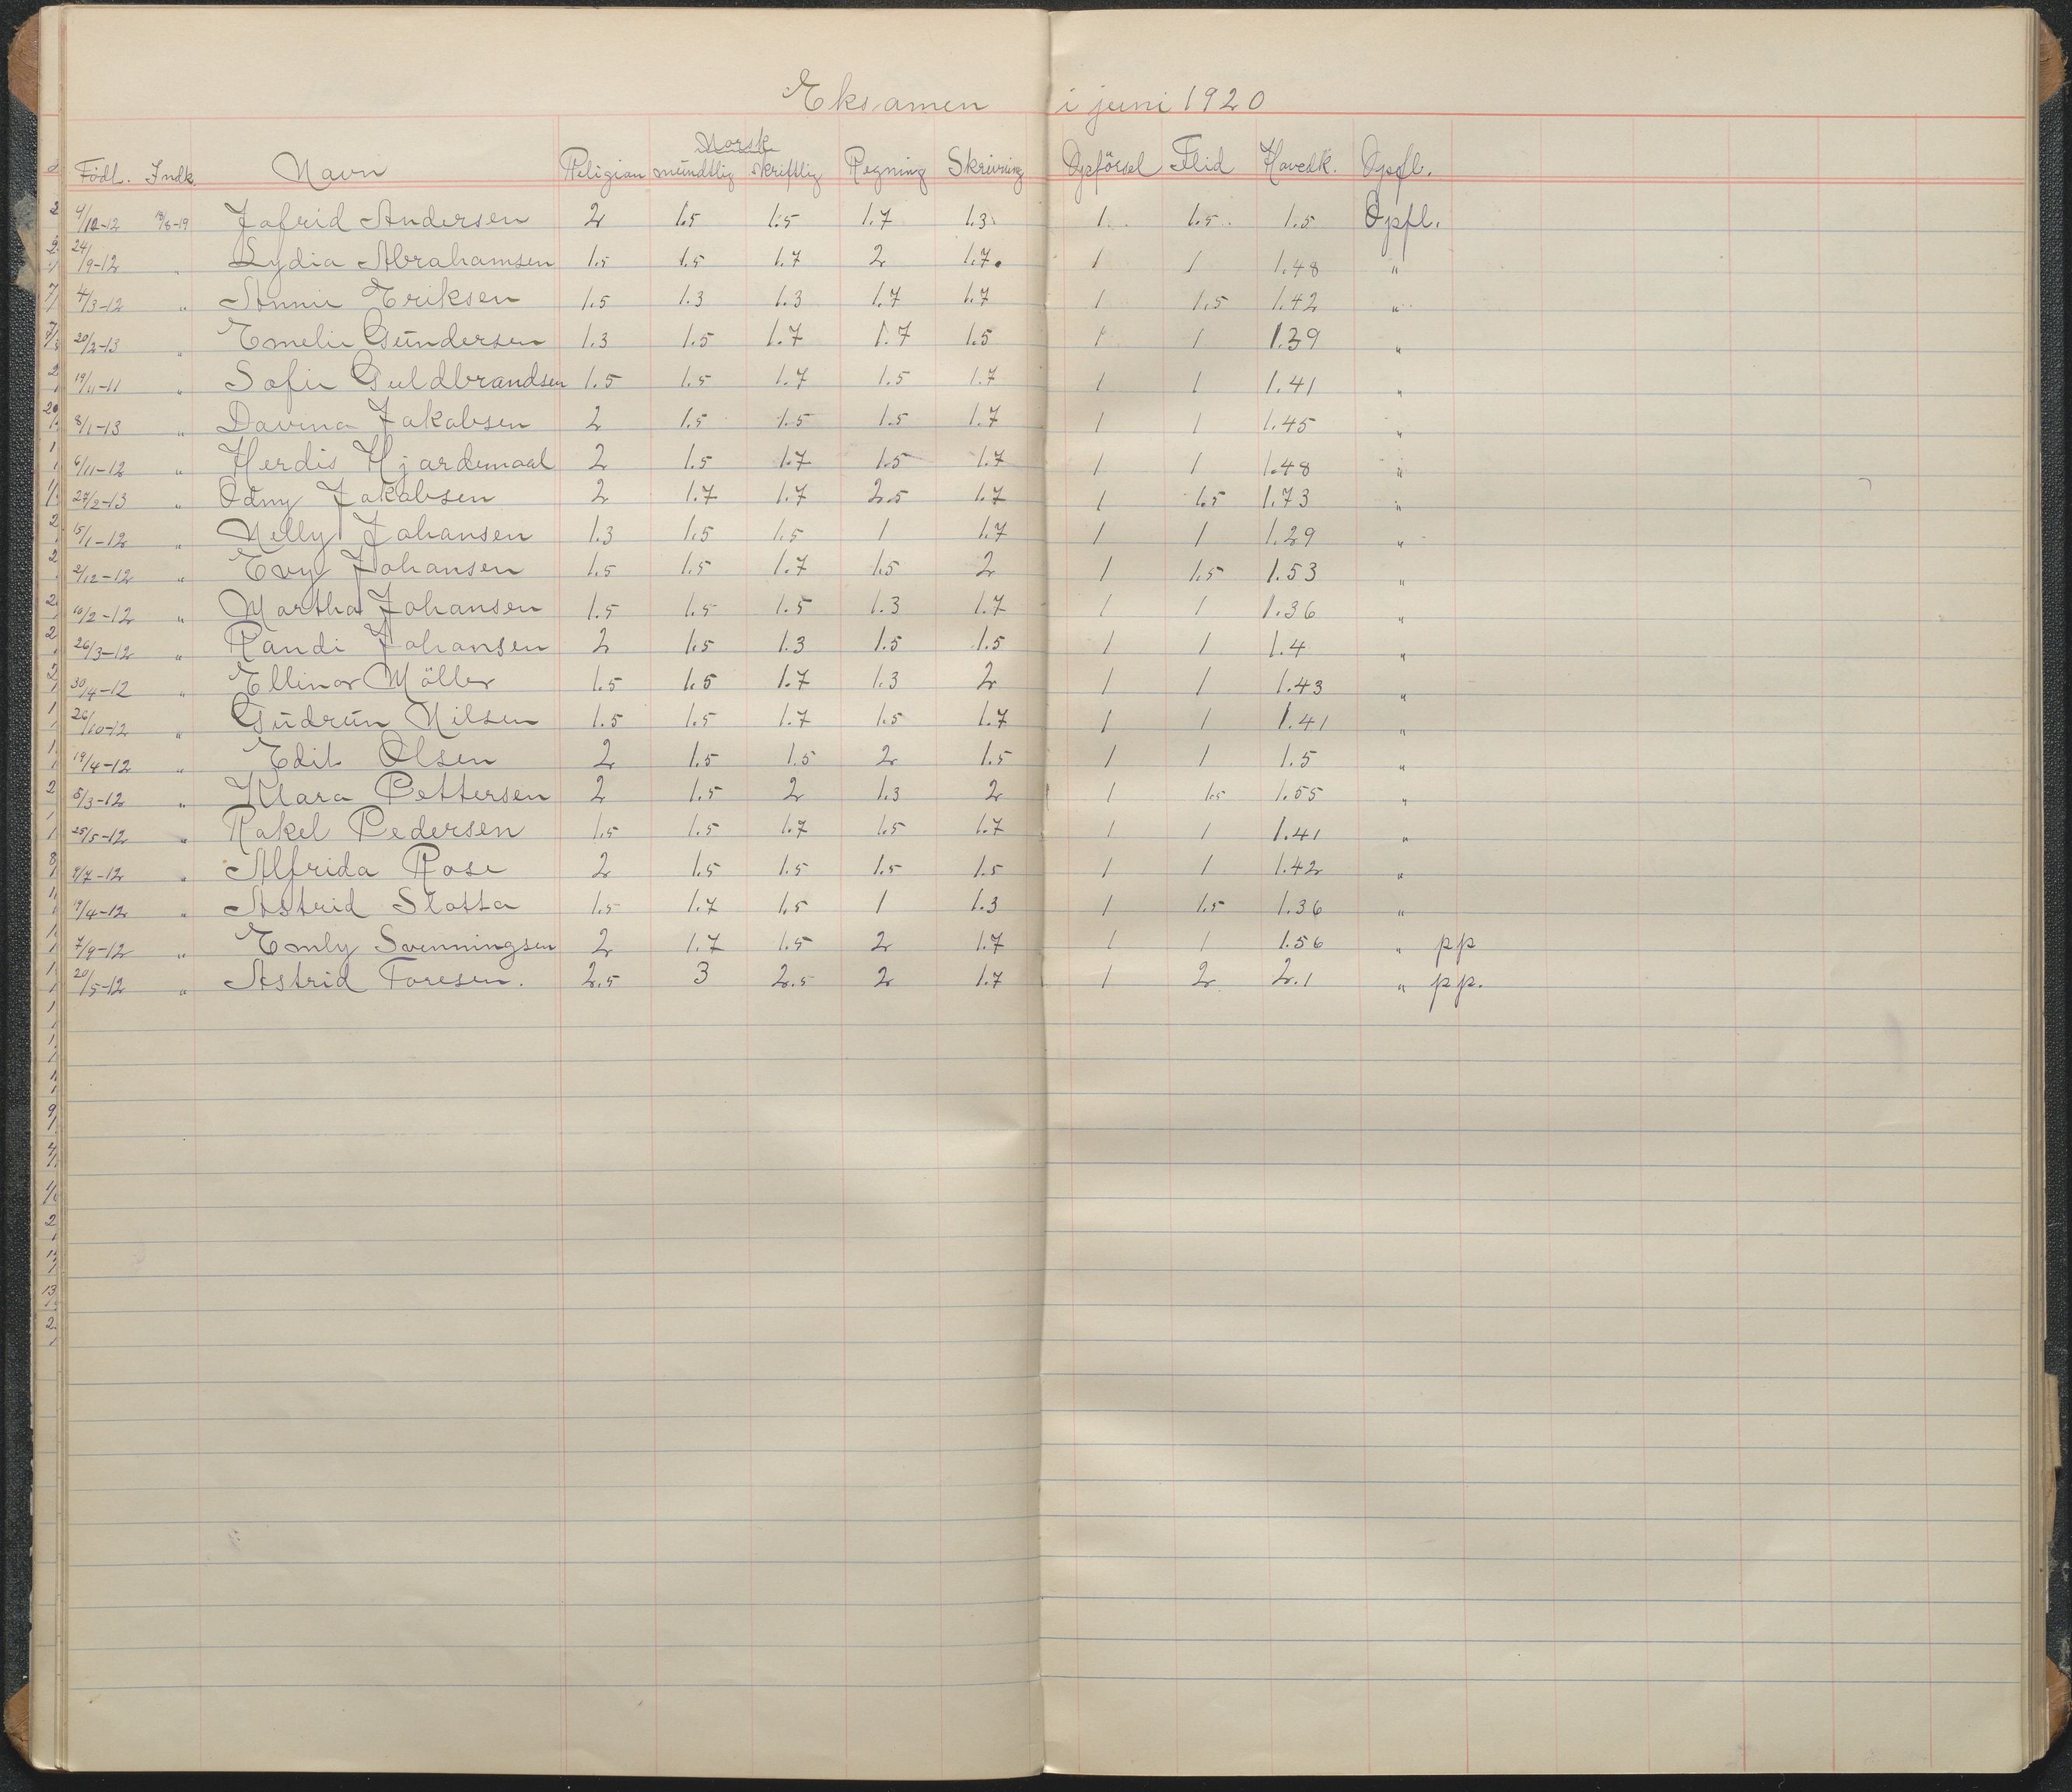 Eksamen i juni 1920
Norsk
Födt. Indk. Navn Religion mündtlig skriftlig Regning Skrivning Opförsel Flid Hovedk. Opfl.
4/12-12 18/8-19 Jofrid Andersen 2 1.5 1.5 1.7 1.3 1 1.5 1.5 Opfl.
24/9-12 " Lydia Abrahamsen 1.5 1.5 1.7 2 1.7 1 1 1.48 "
4/3-12 " Annie Eriksen 1.5 1.3 1.3 1.7 1.7 1 1.5 1.42 "
20/2-13 " Emelie Gündersen 1.3 1.5 1.7 1.7 1.5 1 1 1.39 "
19/11-11 " Sofie Guldbrandsen 1.5 1.5 1.7 1.5 1.7 1 1 1.41 "
8/1-13 " Davina Jakobsen 2 1.5 1.5 1.5 1.7 1 1 1.45 "
6/11-12 " Herdis Hjardemaal 2 1.5 1.7 1.5 1.7 1 1 1.48 "
27/2-13 " Odny Jakobsen 2 1.7 1.7 2.5 1.7 1 1.5 1.73 "
15/1-12 " Nelly Johansen 1.3 1.5 1.5 1 1.7 1 1 1.29 "
2/12-12 " Evy Johansen 1.5 1.5 1.7 1.5 2 1 1.5 1.53 "
16/2-12 " Martha Johansen 1.5 1.5 1.5 1.3 1.7 1 1 1.36 "
26/3-12 " Randi Johansen 2 1.5 1.3 1.5 1.5 1 1 1.4 "
30/4-12 " Ellinor Möller 1.5 1.5 1.7 1.3 2 1 1 1.43 "
26/10-12 " Güdrün Nilsen 1.5 1.5 1.7 1.5 1.7 1 1 1.41 "
19/4-12 " Edit Olsen 2 1.5 1.5 2 1.5 1 1 1.5 "
5/3-12 " Klara Pettersen 2 1.5 2 1.3 2 1 1.5 1.55 "
25/5-12 " Rakel Pedersen 1.5 1.5 1.7 1.5 1.7 1 1 1.41 "
9/7-12 " Alfrida Rose 2 1.5 1.5 1.5 1.5 1 1 1.42 "
19/4-12 " Astrid Slotta 1.5 1.7 1.5 1 1.3 1 1.5 1.36 "
7/9-12 " Emly Svenningsen 2 1.7 1.5 2 1.7 1 1 1.56 " pp
20/5-12 " Astrid Toresen. 2.5 3 2.5 2 1.7 1 2 2.1 " pp.